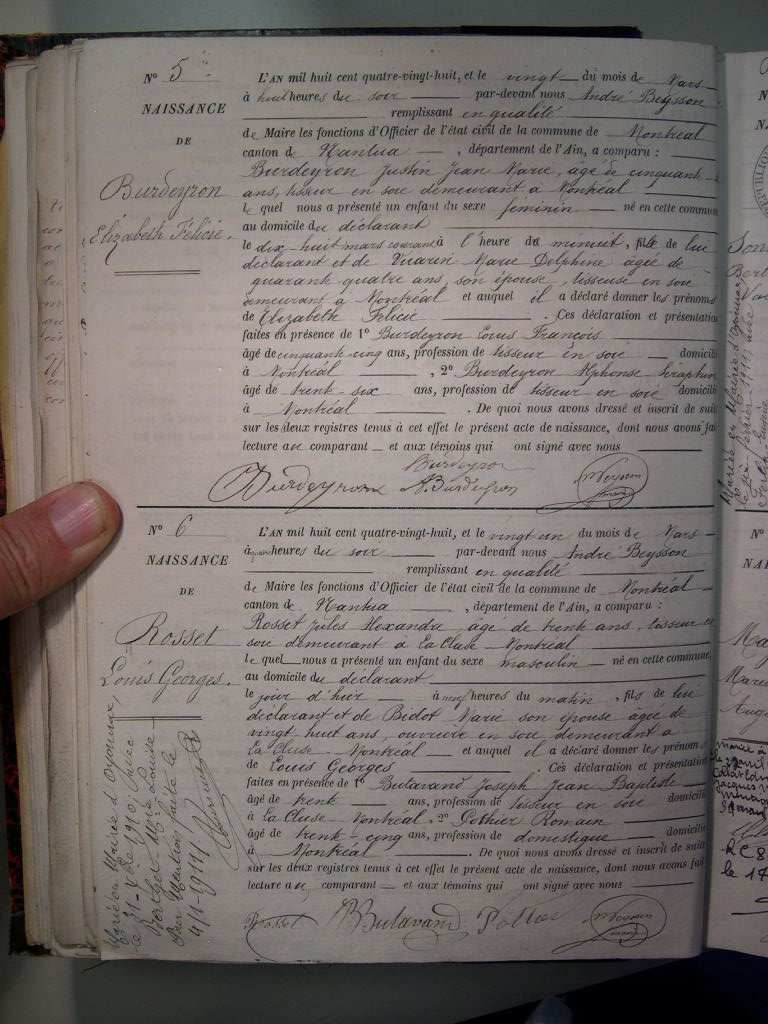 N° 5
NAISSANCE
DE
Burdeyron
Elizabeth Félicie.
L'AN mil huit cent quatre-vingt-huit, et le vingt du mois de Mars
à huit heures du soir par-devant nous André Beysson
remplissant en qualité
de Maire les fonctions d'Officier de l'état civil de la commune de Montréal
canton de Nantua, département de l'Ain, a comparu :
Burdeyron Justin Jean Marie, âgé de cinquante
ans, tisseur en soie demeurant à Montréal
lequel nous a présenté un enfant du sexe féminin né en cette commune
au domicile du déclarant
le dix-huit mars courant à l'heure de minuit, fille de lui
déclarant et de Vuarin Marie Delphine âgée de
quarante quatre ans, son épouse, tisseuse en soie
demeurant à Montréal et auquel il a déclaré donner les prénoms
de Elizabeth Félicie. Ces déclaration et présentation
faites en présence de 1° Burdeyron Louis François
âgé de cinquante cinq ans, profession de tisseur en soie domicilié
à Montréal, 2° Burdeyron Alphonse Séraphin
âgé de trente-six ans, profession de tisseur en soie domicilié
à Montréal. De quoi nous avons dressé et inscrit de suite
sur les deux registres tenus à cet effet le présent acte de naissance, dont nous avons fait
lecture au comparant et aux témoins qui ont signé avec nous
Burdeyron
Burdeyron A. Burdeyron
N° 6
NAISSANCE
DE
Rosset
Louis Georges.
L'AN mil huit cent quatre-vingt-huit, et le vingt un du mois de Mars
heures du soir par-devant nous André Beysson
remplissant en qualité
de Maire les fonctions d'Officier de l'état civil de la commune de Montréal
canton de Nantua, département de l'Ain, a comparu :
Rosset Jules Alexandre, âgé de trente ans, tisseur en
soie demeurant à La Cluse-Montréal
lequel nous a présenté un enfant du sexe masculin né en cette commune,
au domicile du déclarant
le jour d'hier à heures du matin, fils de lui
déclarant et de Bidot Marie son épouse âgée de
vingt huit ans, ouvrière en soie demeurant à
La Cluse-Montréal et auquel il a déclaré donner les prénoms
de Louis Georges. Ces déclaration et présentation
faites en présence de 1° Butavand Joseph Jean Baptiste
âgé de trente ans, profession de tisseur en soie domicilié
à La Cluse-Montréal, 2° Romain
âgé de trente-cinq ans, profession de domestique domicilié
à Montréal. De quoi nous avons dressé et inscrit de suite
sur les deux registres tenus à cet effet le présent acte de naissance, dont nous avons fait
lecture au comparant et aux témoins qui ont signé avec nous
Rosset Butavand
Marié en Mairie d'Oyonnax,
le 31-Xbre 1910, avec
Marie Louise
Pour Mention faite le
4/1-1911